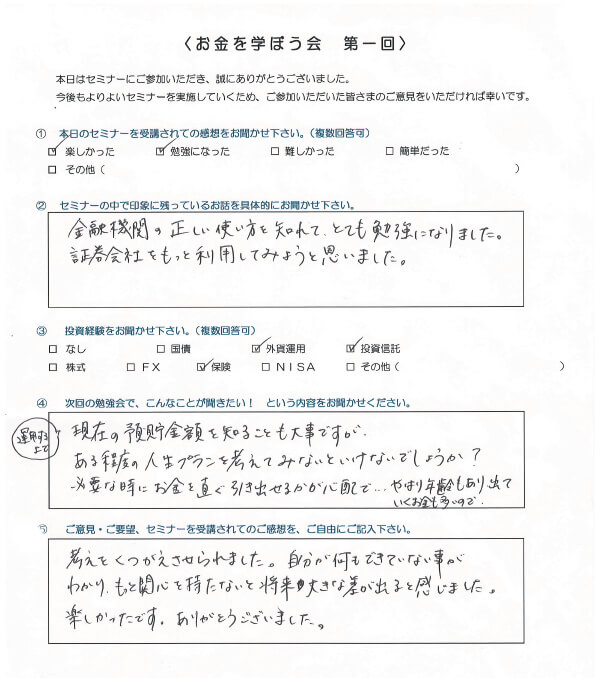 〈お金を学ぼう会　第一回〉
本日はセミナーにご参加いただき、誠にありがとうございました。
今後もよりよいセミナーを実施していくため、ご参加いただいた皆さまのご意見をいただければ幸いです。
① 本日のセミナーを受講されての感想をお聞かせ下さい。（複数回答可）
☑ 楽しかった ☑ 勉強になった □ 難しかった □ 簡単だった
□ その他（ ）
② セミナーの中で印象に残っているお話を具体的にお聞かせ下さい。
金融機関の正しい使い方を知れて、とても勉強になりました。
証券会社をもっと利用してみようと思いました。
③ 投資経験をお聞かせ下さい。（複数回答可）
□ なし □ 国債 ☑ 外貨運用 ☑ 投資信託
□ 株式 □ ＦＸ ☑ 保険 □ ＮＩＳＡ □ その他（ ）
④ 次回の勉強会で、こんなことが聞きたい！ という内容をお聞かせください。
運用する上で
現在の預貯金額を知ることも大事ですが、
ある程度の人生プランを考えてみないといけないでしょうか？
必要な時にお金を直ぐ引き出せるかが心配で… やはり年齢もあり出て
いくお金も多いので。
⑤ ご意見・ご要望、セミナーを受講されてのご感想を、ご自由にご記入下さい。
考えをくつがえさせられました。自分が何もできていない事が
わかり、もっと関心を持たないと将来大きな差が出ると感じました。
楽しかったです。ありがとうございました。